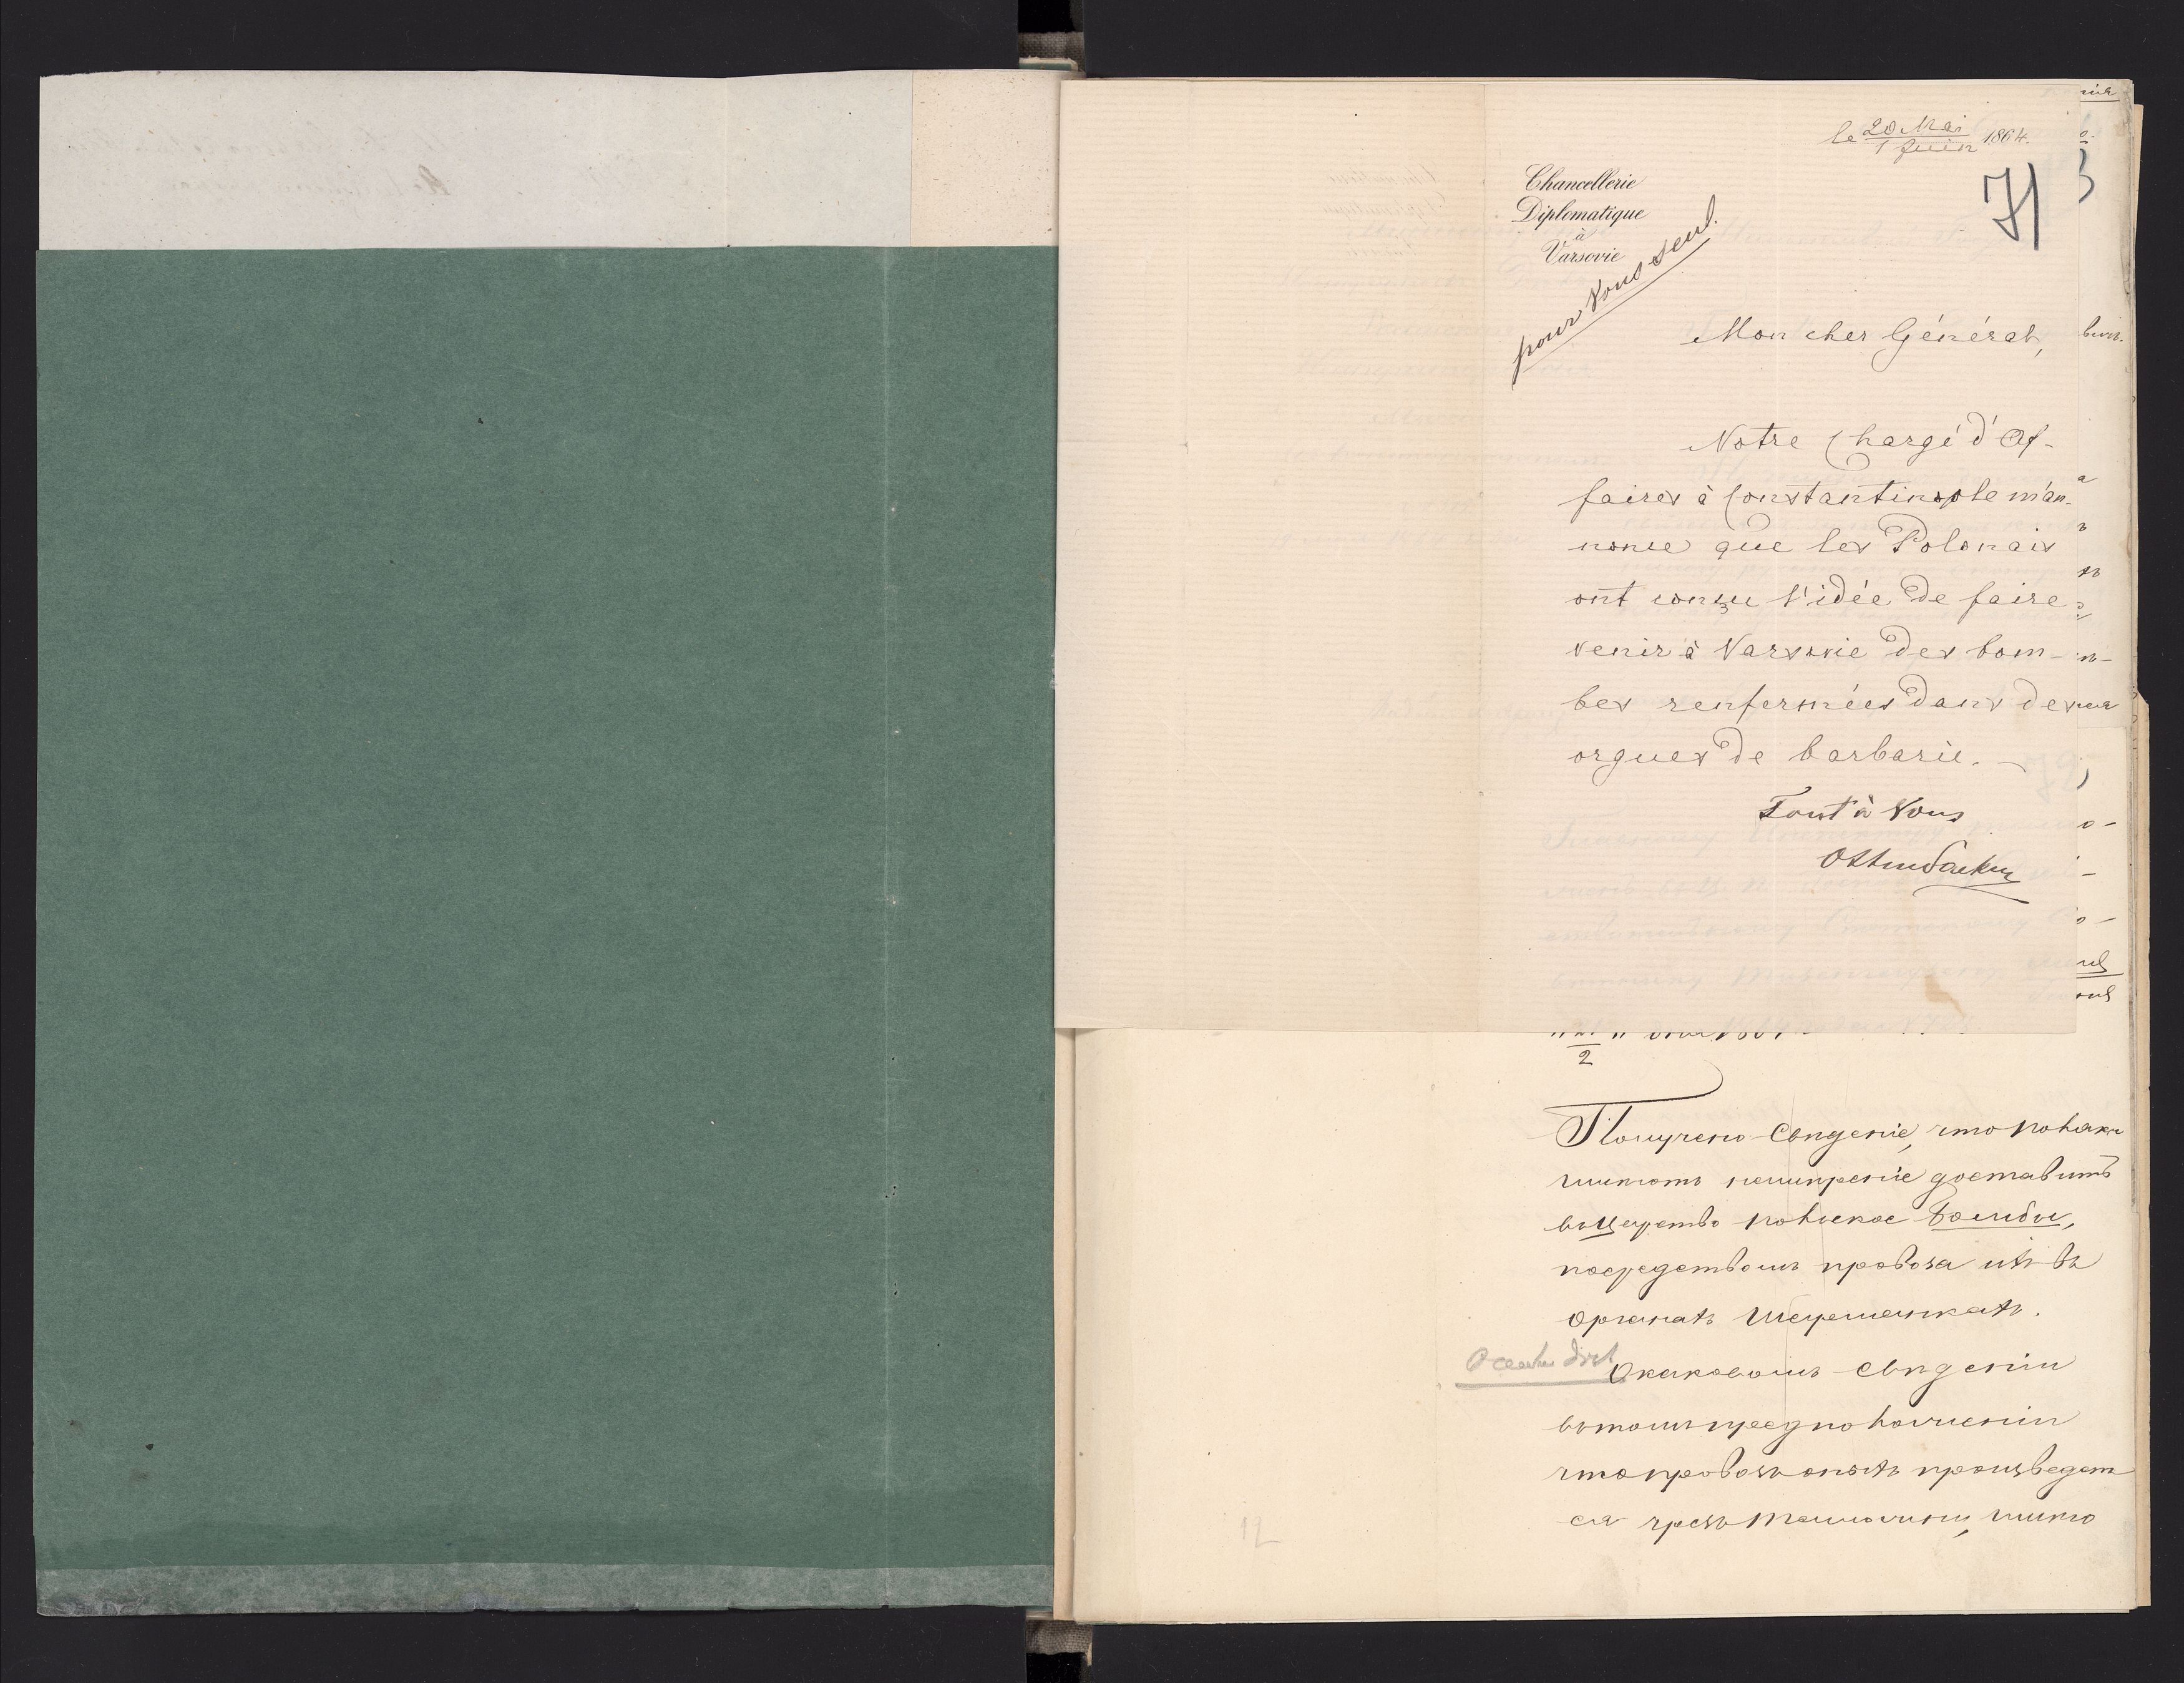 le 20 Mai 1864.
1 Juin
71
Chancellerie
Diplomatique
à
Varsovie
pour Vous seul.
Mon cher Général,
Notre Chargé d'Af-
faires à Constantinople m'an-
nonce que les Polonais
ont conçu l'idée de faire
venir à Varsovie des bom-
bes renfermées dans des
orgues de barbarie. —
Tout à Vous
2
Получено сведение, что поляки
имеютъ намерение доставить
въ Царство Польское бомбы,
посредствомъ провоза ихъ въ
органахъ шарманкахъ.
О каковомъ сведении
въ томъ предположении
что провозъ оныхъ произведет
ся чрезъ таможни, имею
12